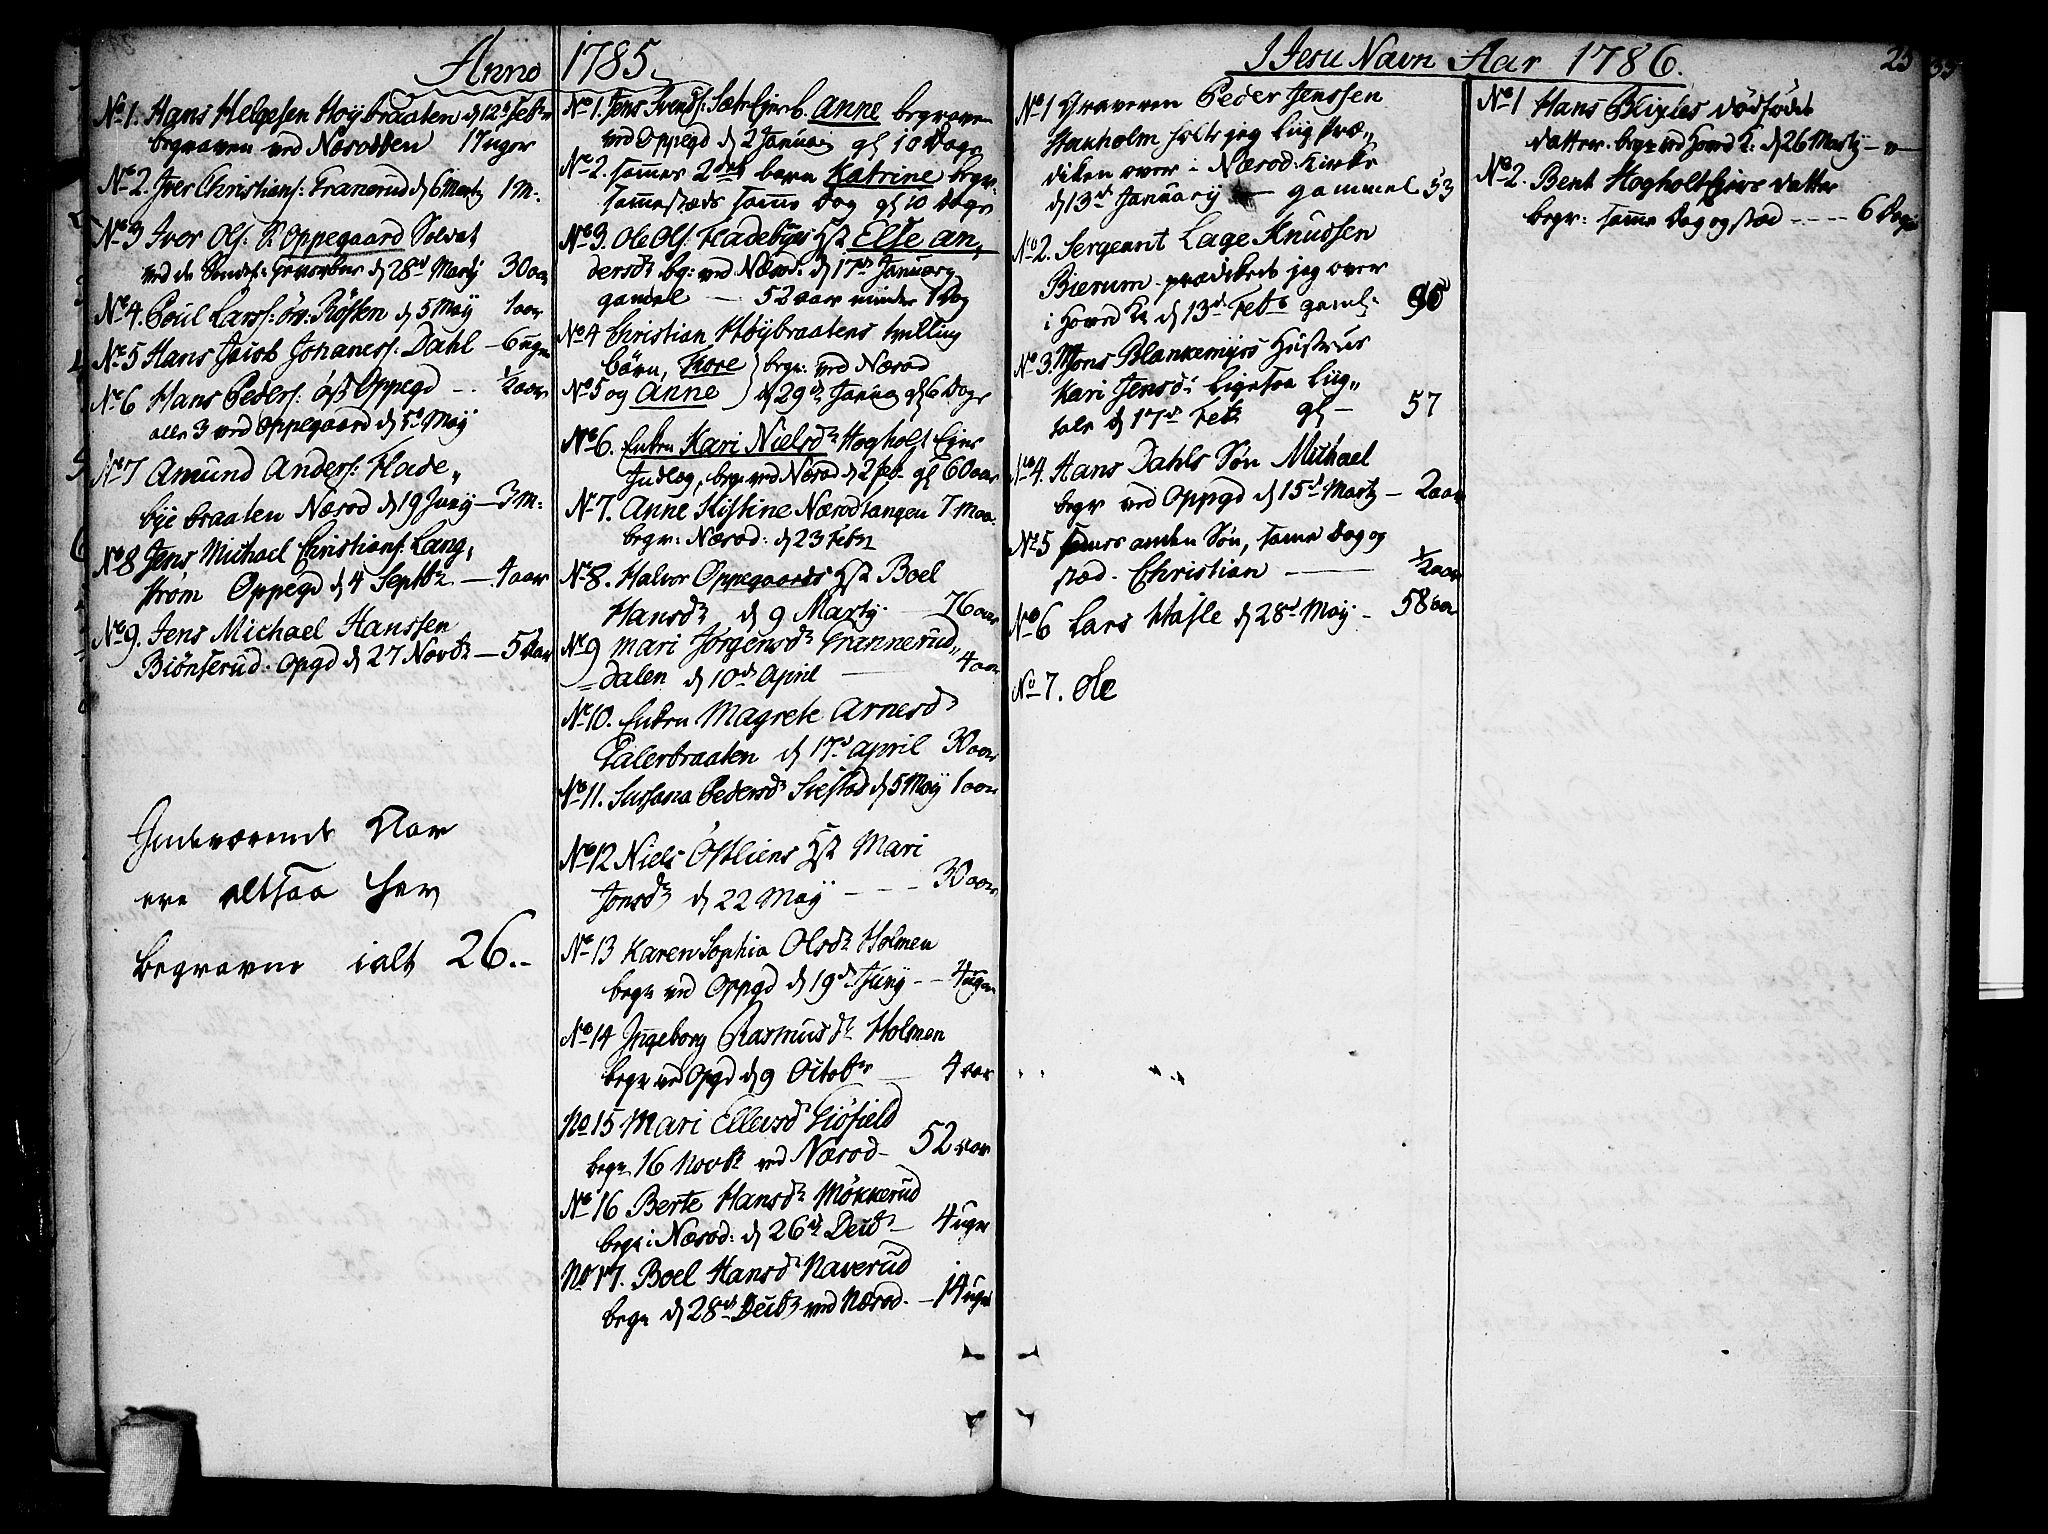 Anno 1785.
No 1. Hans Helgesen Höybraaten d 12te Febr
begraven ved Næsodden 17 uger
No 2. Iver Christians: Tranerud d 6 Marty 1 M.
No 3 Iver Ols: Oppegaard Soldat
28d Marty 30 aar
No 4. Poul Larss: öv: Rösten d 5 May 1 aar
No 5 Hans Jacob Johaness: Dahl – 6 uger
No 6 Hans Peders: Oppegd – ½ aar
alle 3 ved Oppegaard d 5d May
No 7 Amund Anders: Flade„
bye braaten Næsod d 19 Juny – 3 M.
No 8 Jens Michael Christians: Lang,
strøm Oppegd d 4 Septbr – 4 aar
No 9. Jens Michael Hanssen
Biönserud. Opgd d 27 Novbr – 5 aar
Indeværende Aar
ere altsaa her
begravne ialt 26.-
No 1. Jens Svends: Sætre Ejeb. Anne begraven
ved Oppegd d 2 January gl 10 Dage
No 2. sammes 2det barn Katrine begr.
sammestæds samme Dag gl 10 Dage
No 3. Ole Ols: Fladebyes Hst Else An„
dersdr bg: ved Næsod: d 17de January
gamel – 52 aar minder 1 Dag
No 4 Christian Höybraatens tvilling
börn, Thore } begr: ved Næsod
No 5 og Anne } d 29de Janua gl 6 Dage
No 6. Enken Kari Nielsdr Hogholt Ejes
Indlæg, begr ved Næsod d 2 feb. gl 60 aar
No 7. Anne Kistine Næsodtangen 7 Maa.
begr: Næsod: d 23 Febr
No 8. Halvor Oppegaards Hst Boel
Hansdr d 9 Marty – 76 aar
No 9 Mari Jörgensdr Trannerud„
Dalen d 10de April – 4 aar
No 10. Enken Magrete Arnesdr
d 17d april 30 aar
No 11. Susana Pedersdr d 5 May 1 aar
No 12 Niels Östliens Hst Mari
Jonsdr d 22 May – – – 30 aar
No 13 Karen Sophia Olsdr Holmen
begr ved Oppgd d 19de Juny – – 4 uger
No 14 Ingeborg Rasmusdr Holmen
begr ved Opgd d 9 Octobr – 4 aar
No 15 Mari Ellevsdr Giöfield
begr 16 Novbr ved Næsod – 52 aar
No 16 Berte Hansdr Mökkerud
begr i Næsod: d 26de Decbr – 4 uger
No 17. Boel Hansdr Naverud
begr d 28de Decbr ved Næsod. – 14 uger
I Jesu Navn Aar 1786.
25
No 1 Graveren Peder Jenssen
Stenholm holte jeg Liig Præ„
diken over i Næsod: Kirke
d 13d January – gammel 53
No 2. Sergeant Lage Knudssen
Bierum prædikede jeg over
i Hoved K: d 13d Feb gaml:
No 3. Mons Blankemyrs Hustrue
Kari Jensdr ligesaa Liig„
tale d 17d Febr gl – 57
No 4. Hans Dahls Sön Michael
begr ved Oppgd d 15d Marty – 2 aar
No 5 sammes anden Sön, samme Dag og
stæd. Christian – ½ aar
No 6 Lars Hasle d 28d May – 58 aar
No 7. Ole
No 1 Hans Blixes dødfödte
datter. begr ved Hoved K: d 26 Marty – „ –
No 2. Bent Hogholt Ejers datter
begr: samme Dag og stæd – – – – 6 Dage